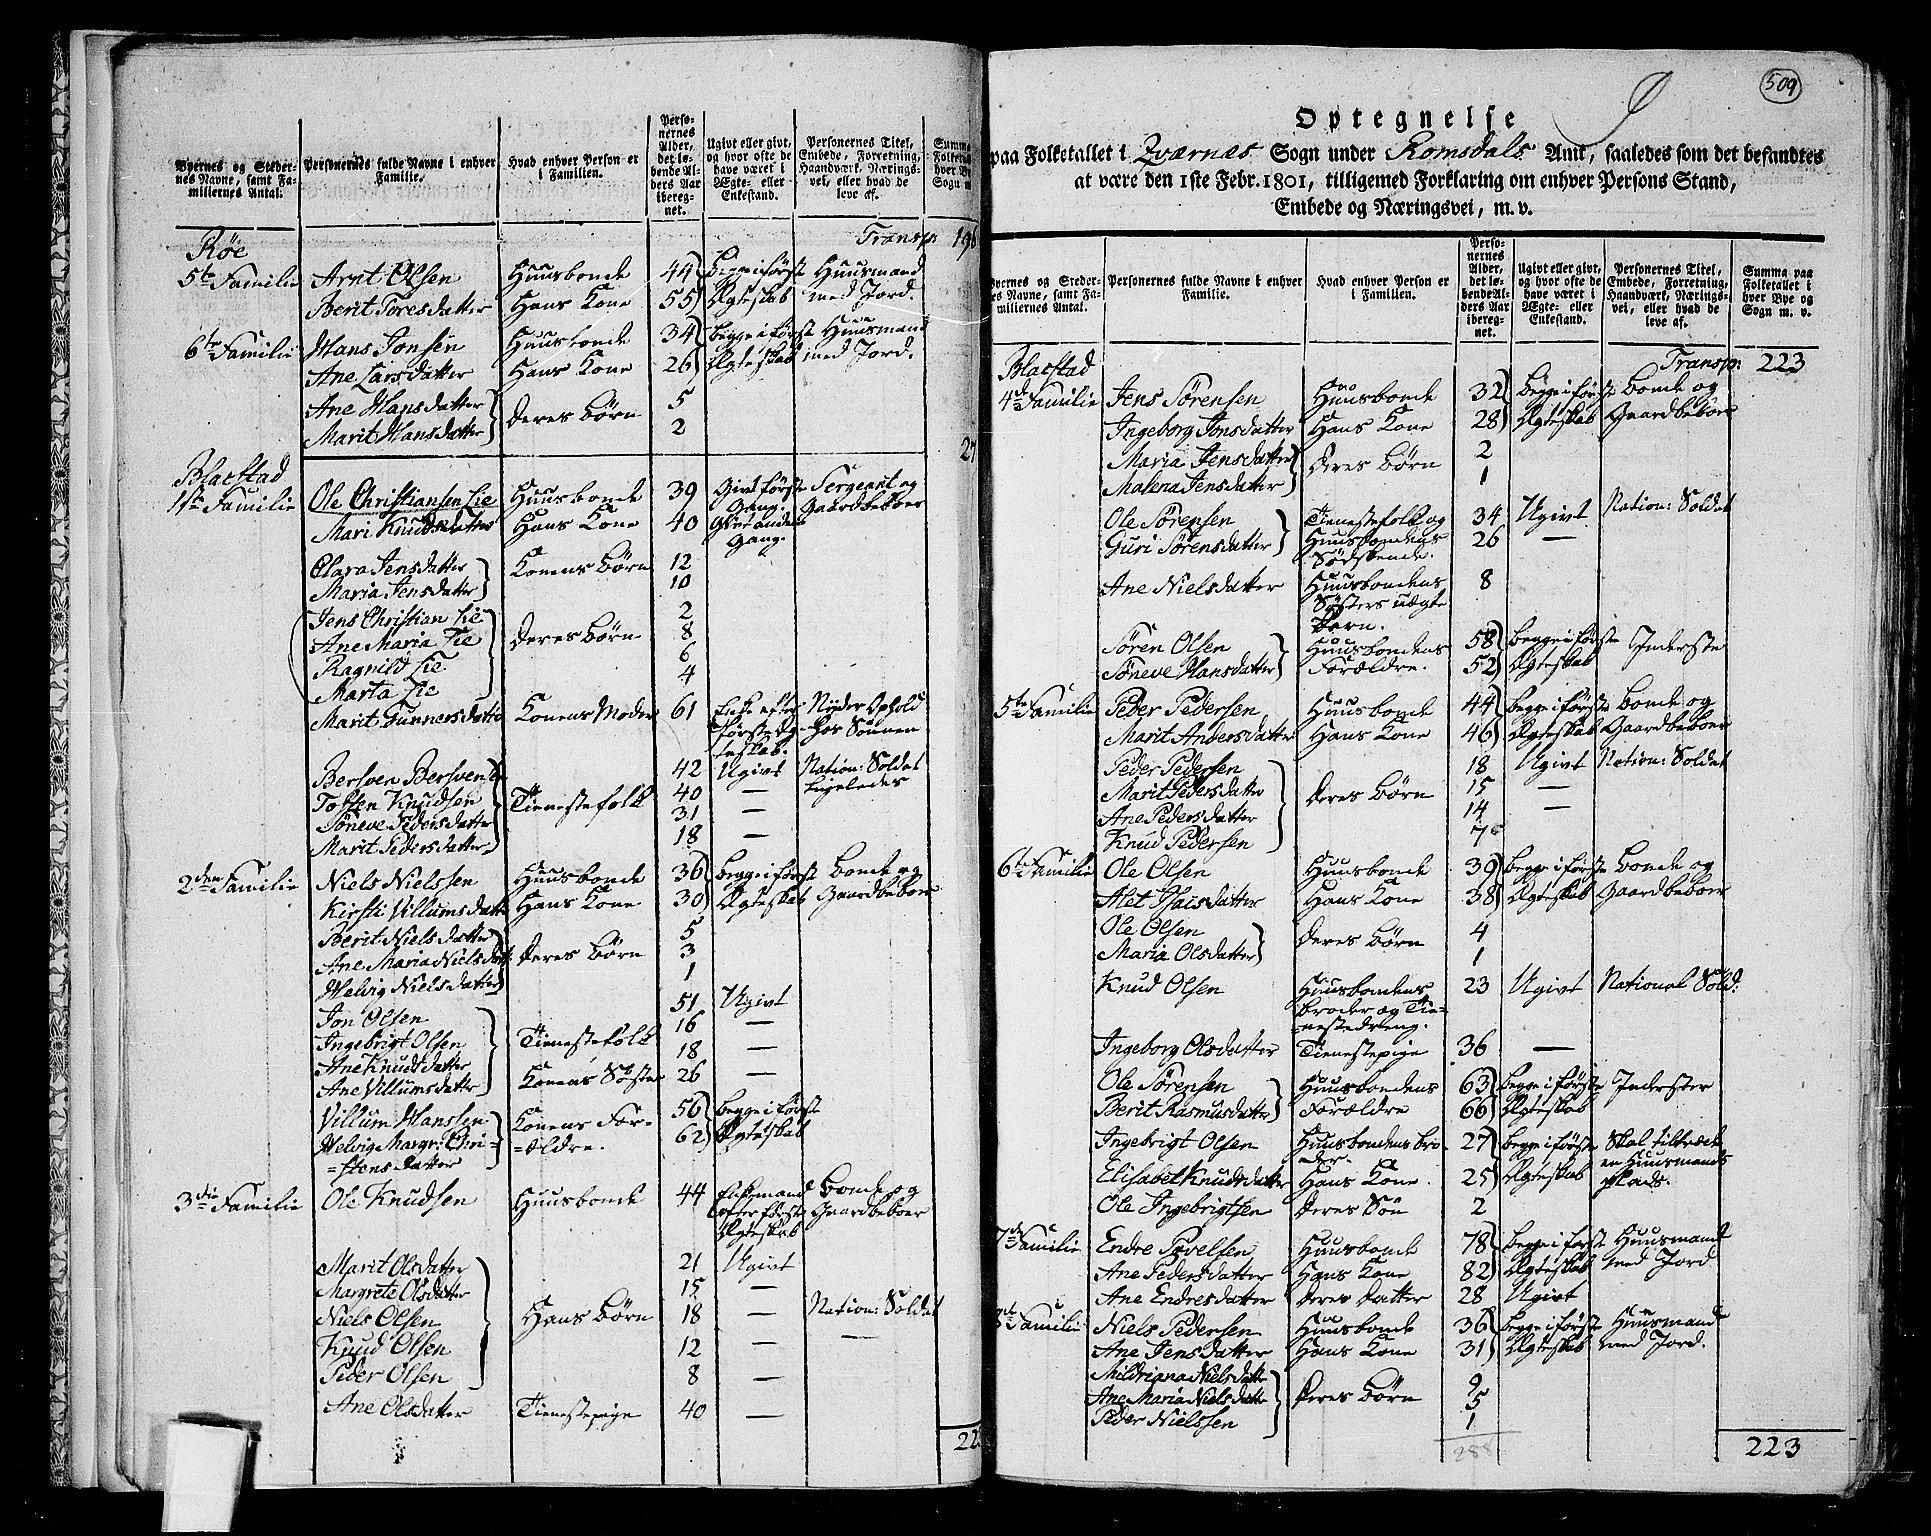 Byernes og Steder-
nes Navne, samt Fa-
miliernes Antal.
Personernes fulde Navne i enhver
Familie.
Hvad enhver Person er
i Familien.
Perso-
nernes
Alder,
det lø-
bende Al-
ders Aar
iberег-
net.
Ugivt eller givt,
og hvor ofte de
have været i
Ægte- eller
Enkestand.
Personernes Titel,
Embede, Forretning,
Haandværk, Nærings-
vei, eller hvad de
leve af.
Summa
Folketal
hver By
Sogn m
Røe Transp 196
5te Familie Arnt Olsen Huusbonde 44 begge i første Huusmand
Berit Tores datter Hans Kone 55 Ægteskab med Jord.
6te Familie Hans Jonsen Huusbonde 34 begge i første Huusmand
Ane Lars datter Hans Kone 26 Ægteskab med Jord.
Ane Hans datter Deres Børn 5
Marit Hansdatter 2
27
Blaestad
1ste Familie Ole Christiansen Lie Huusbonde 39 Givt første Gang. Sergeant og Gaardbeboer
Mari Knudsdatter Hans Kone 40 Givt anden Gang.
Clara Jensdatter Konens Børn 12
Maria Jensdatter 10
Jens Christian Lie Deres Børn 2
Ane Maria Lie 8
Ragnild Lie 6
Marta Lie 4
Marit Gunnersdatter Konens Moder 61 Enke efter første Ægteskab. Nyder Ophold hos Sønnen
Bersven Bersvensen Tienestefolk 42 Ugivt Nation: Soldat
Tosten Knudsen 40 — Ligeledes
Søneve Pedersdatter 31 —
Marit Pedersdatter 18 —
2den Familie Niels Nielssen Huusbonde 36 begge i først Bonde og
Kirsti Villumsdatter Hans Kone 30 Ægteskab Gaardbeboer
Berit Niels datter Deres Børn 5
Ane Maria Nielsdatt: 3
Helvig Nielsdatter 1
Jon Olsen Tienestefolk 51 Ugivt
Ingebrigt Olsen 16 —
Ane Knudsdatter 18 —
Ane Villumsdatter Konens Søster 26 —
Villum Hanssen Konens For- 56 begge i første
Helvig Margr: Chri- =ældre. 62 Ægteskab
=stens datter
3die Familie Ole Knudsen Huusbonde 44 Enkemand efter første Ægteskab Bonde og Gaardbeboer
Marit Olsdatter Hans Børn 21 Ugivt
Margrete Olsdatter 15 —
Niels Olsen 18 — Nation: Soldat
Knud Olsen 12 — —
Peder Olsen 8 —
Ane Olsdatter Tienestepige 40 —
22
509
Optegnelse
paa Folketallet i Qværnæs Sogn under Romsdals Amt, saaledes som det befandtes
at være den 1ste Febr. 1801, tilligemed Forklaring om enhver Persons Stand,
Embede og Næringsvei, m. v.
Byernes og Steder-
es Navne, samt Fa-
miliernes Antal.
Personernes fulde Navne i enhver
Familie.
Hvad enhver Person er
i Familien.
Perso-
nernes
Alder,
det lø-
bende Al-
ders Aar
ibereg-
net.
Ugivt eller givt,
og hvor ofte de
have været i
Ægte- eller
Enkestand.
Personernes Titel,
Embede, Forretning,
Haandværk, Nærings-
vei, eller hvad de
leve af.
Summa paa
Folketallet i
hver Bye og
Sogn m. v.
Blaestad Transp: 223
4de Familie Jens Sørensen Huusbonde 32 begge i første Bonde og
Ingeborg Jonsdatter Hans Kone 28 Ægteskab Gaardbeboer
Maria Jensdatter Deres Børn 2
Malena Jensdatter 1
Ole Sørensen Tienestefolk og 34 Ugivt Nation: Soldat
Guri Sørensdatter Huusbondens Sødskende. 26 —
Ane Nielsdatter Huusbondens Søsters uægte Barn. 8
Sören Olsen Huusbondens 58 begge i første Inderste
Söneve Hansdatter Forældre. 52 Ægteskab
5te Familie Peder Pedersen Huusbonde 44 begge i første Bonde og
Marit Andersdatter Hans Kone 46 Ægteskab Gaardbeboer
Peder Pedersen Deres Børn 18 Ugivt Nation: Soldat
Marit Pedersdatter 15 —
Ane Pedersdatter 14 —
Knud Pedersen 7
6te Familie Ole Olsen Huusbonde 39 begge i første Bonde og
Alet Isacsdatter Hans Kone 38 Ægteskab Gaardbeboer
Ole Olsen Deres Børn 4
Maria Olsdatter 1
Knud Olsen Huusbondens Broder og Tie-=nestedreng. 23 Ugivt National Sold:
Ingeborg Olsdatter Tienestepige 36 —
Ole Sørensen Huusbondens 63 begge i første Inderster
Berit Rasmusdatter Forældre 66 Ægteskab
Ingebrigt Olsen Huusbondens bro-=der. 27 begge i første Skal tiltræde
Elisabet Knudsdatter Hans Kone 25 Ægteskab en Huusmands plads.
Ole Ingebrigtsen Deres Søn 2
7de Familie Endre Povelsen Huusbonde 78 begge i først Huusmand
Ane Pedersdatter Hans Kone 82 Ægteskab med Jord
Ane Endresdatter Deres Datter 28 Ugivt
Familie Niels Pedersen Huusbonde 36 begge i første Huusmand
Ane Jensdatter Hans Kone 31 Ægteskab med Jord.
Mildriana Nielsdatter Deres Børn 9
Ane Maria Nielsdatter 5
Peder Nielssen 1
288
223